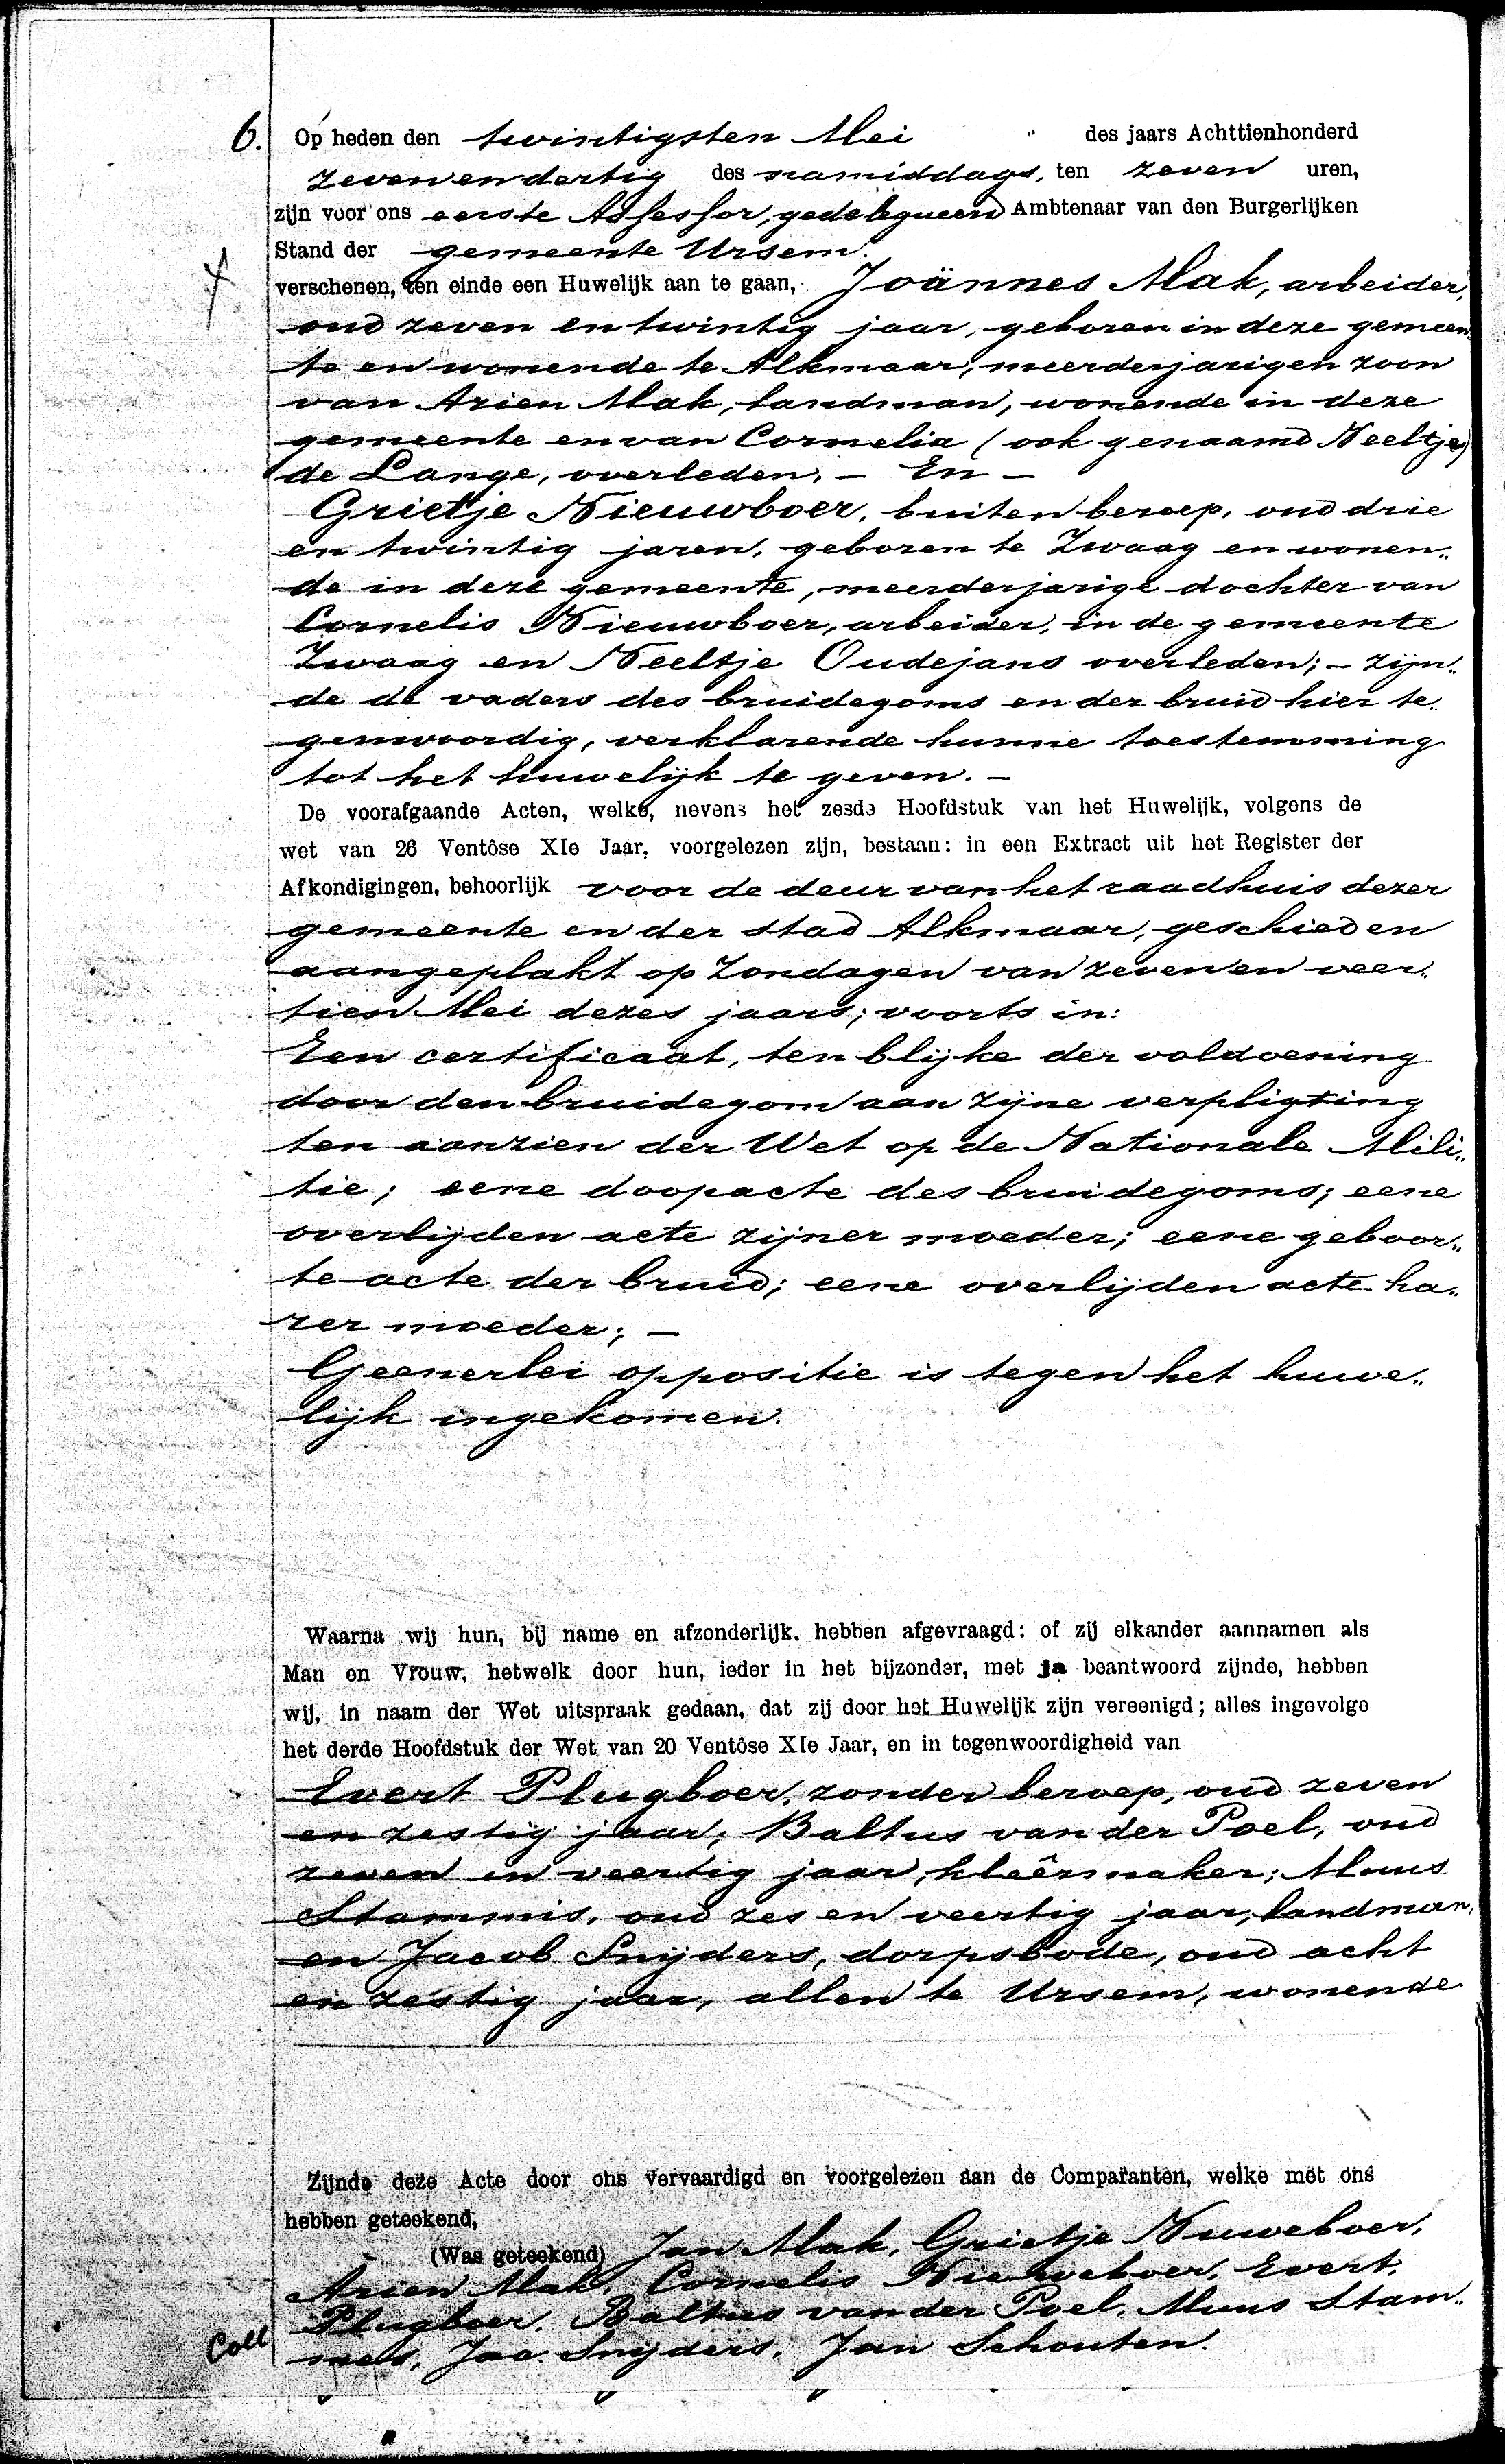 6. Op heden den twintigsten Mei " des jaars Achttienhonderd
zeven en dertig des namiddags, ten zeven uren,
zijn voor ons eerste Assessor, gedelegueerd Ambtenaar van den Burgerlijken
Stand der gemeente Ursem.
verschenen, ten einde een Huwelijk aan te gaan, Joännes Mak, arbeider,
oud zeven en twintig jaar, geboren in deze gemeen„
te en wonende te Alkmaar, meerderjarigen zoon
van Arien Mak, landman, wonende in deze
gemeente en van Cornelia (ook genaamd Neeltje)
de Lange, overleden. – En –
Grietje Nieuwboer, buiten beroep, oud drie
en twintig jaren, geboren te Zwaag en wonen„
de in deze gemeente, meerderjarige dochter van
Cornelis Nieuwboer, arbeider, in de gemeente
Zwaag en Neeltje Oudejans overleden; – zijn„
de de vaders des bruidegoms en der bruid hier te„
genwoordig, verklarende hunne toestemming
tot het huwelijk te geven. –
De voorafgaande Acten, welke, nevens het zesde Hoofdstuk van het Huwelijk, volgens de
wet van 26 Ventôse XIe Jaar, voorgelezen zijn, bestaan: in een Extract uit het Register der
Afkondigingen, behoorlijk voor de deur van het raadhuis dezer
gemeente en der stad Alkmaar, geschied en
aangeplakt op Zondagen van zeven en veer„
tien Mei dezes jaars; voorts in:
Een certificaat, ten blijke der voldoening
door den bruidegom aan zijne verpligting
ten aanzien der Wet op de Nationale Mili„
tie; eene doopacte des bruidegoms; eene
overlijden acte zijner moeder; eene geboor„
te acte der bruid; eene overlijden acte ha„
rer moeder; –
Geenerlei oppositie is tegen het huwe„
lijk ingekomen.
Waarna wij hun, bij name en afzonderlijk, hebben afgevraagd: of zij elkander aannamen als
Man en Vrouw, hetwelk door hun, ieder in het bijzonder, met ja beantwoord zijnde, hebben
wij, in naam der Wet uitspraak gedaan, dat zij door het Huwelijk zijn vereenigd; alles ingevolge
het derde Hoofdstuk der Wet van 20 Ventôse XIe Jaar, en in tegenwoordigheid van
Evert Plugboer, zonder beroep, oud zeven
en zestig jaar; Baltus van der Poel, oud
zeven en veertig jaar, kleêrmaker; Muus
Stammis, oud zes en veertig jaar, landman,
en Jacob Snijders, dorpsbode, oud acht
en zestig jaar, allen te Ursem, wonende
Zijnde deze Acte door ons vervaardigd en voorgelezen aan de Comparanten, welke met ons
hebben geteekend,
(Was geteekend) Jan Mak, Grietje Nuweboer,
Arien Mak, Cornelis Nieweboer, Evert
Plugboer, Baltus van der Poel, Muus Stam„
mes, Jac. Snijders, Jan Schouten.
Coll